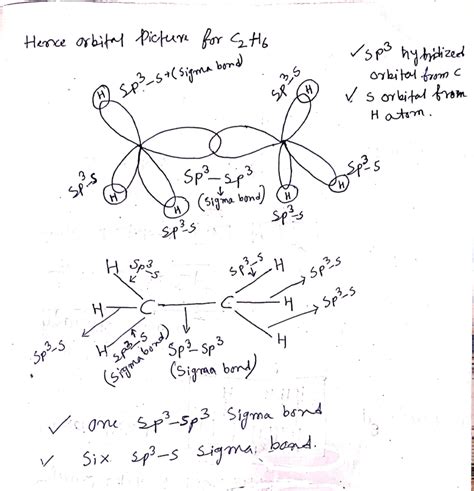 Hence orbital Picture for C2H6
✓ Sp3 hybridized
orbital from C
✓ S orbital from
H atom.
Sp3-S → (Sigma bond)
H
Sp3-S
H
Sp3-S
H
Sp3-S
H
Sp3-Sp3
(Sigma bond)
Sp3-S
H
Sp3-S
H
H Sp3-S
Sp3-S H
Sp3-S
H C C H
Sp3-S
H
H
Sp3-S
Sp3-S
(Sigma bond)
Sp3-Sp3
(Sigma bond)
✓ one Sp3-Sp3 Sigma bond
✓ Six Sp3-S Sigma bond.